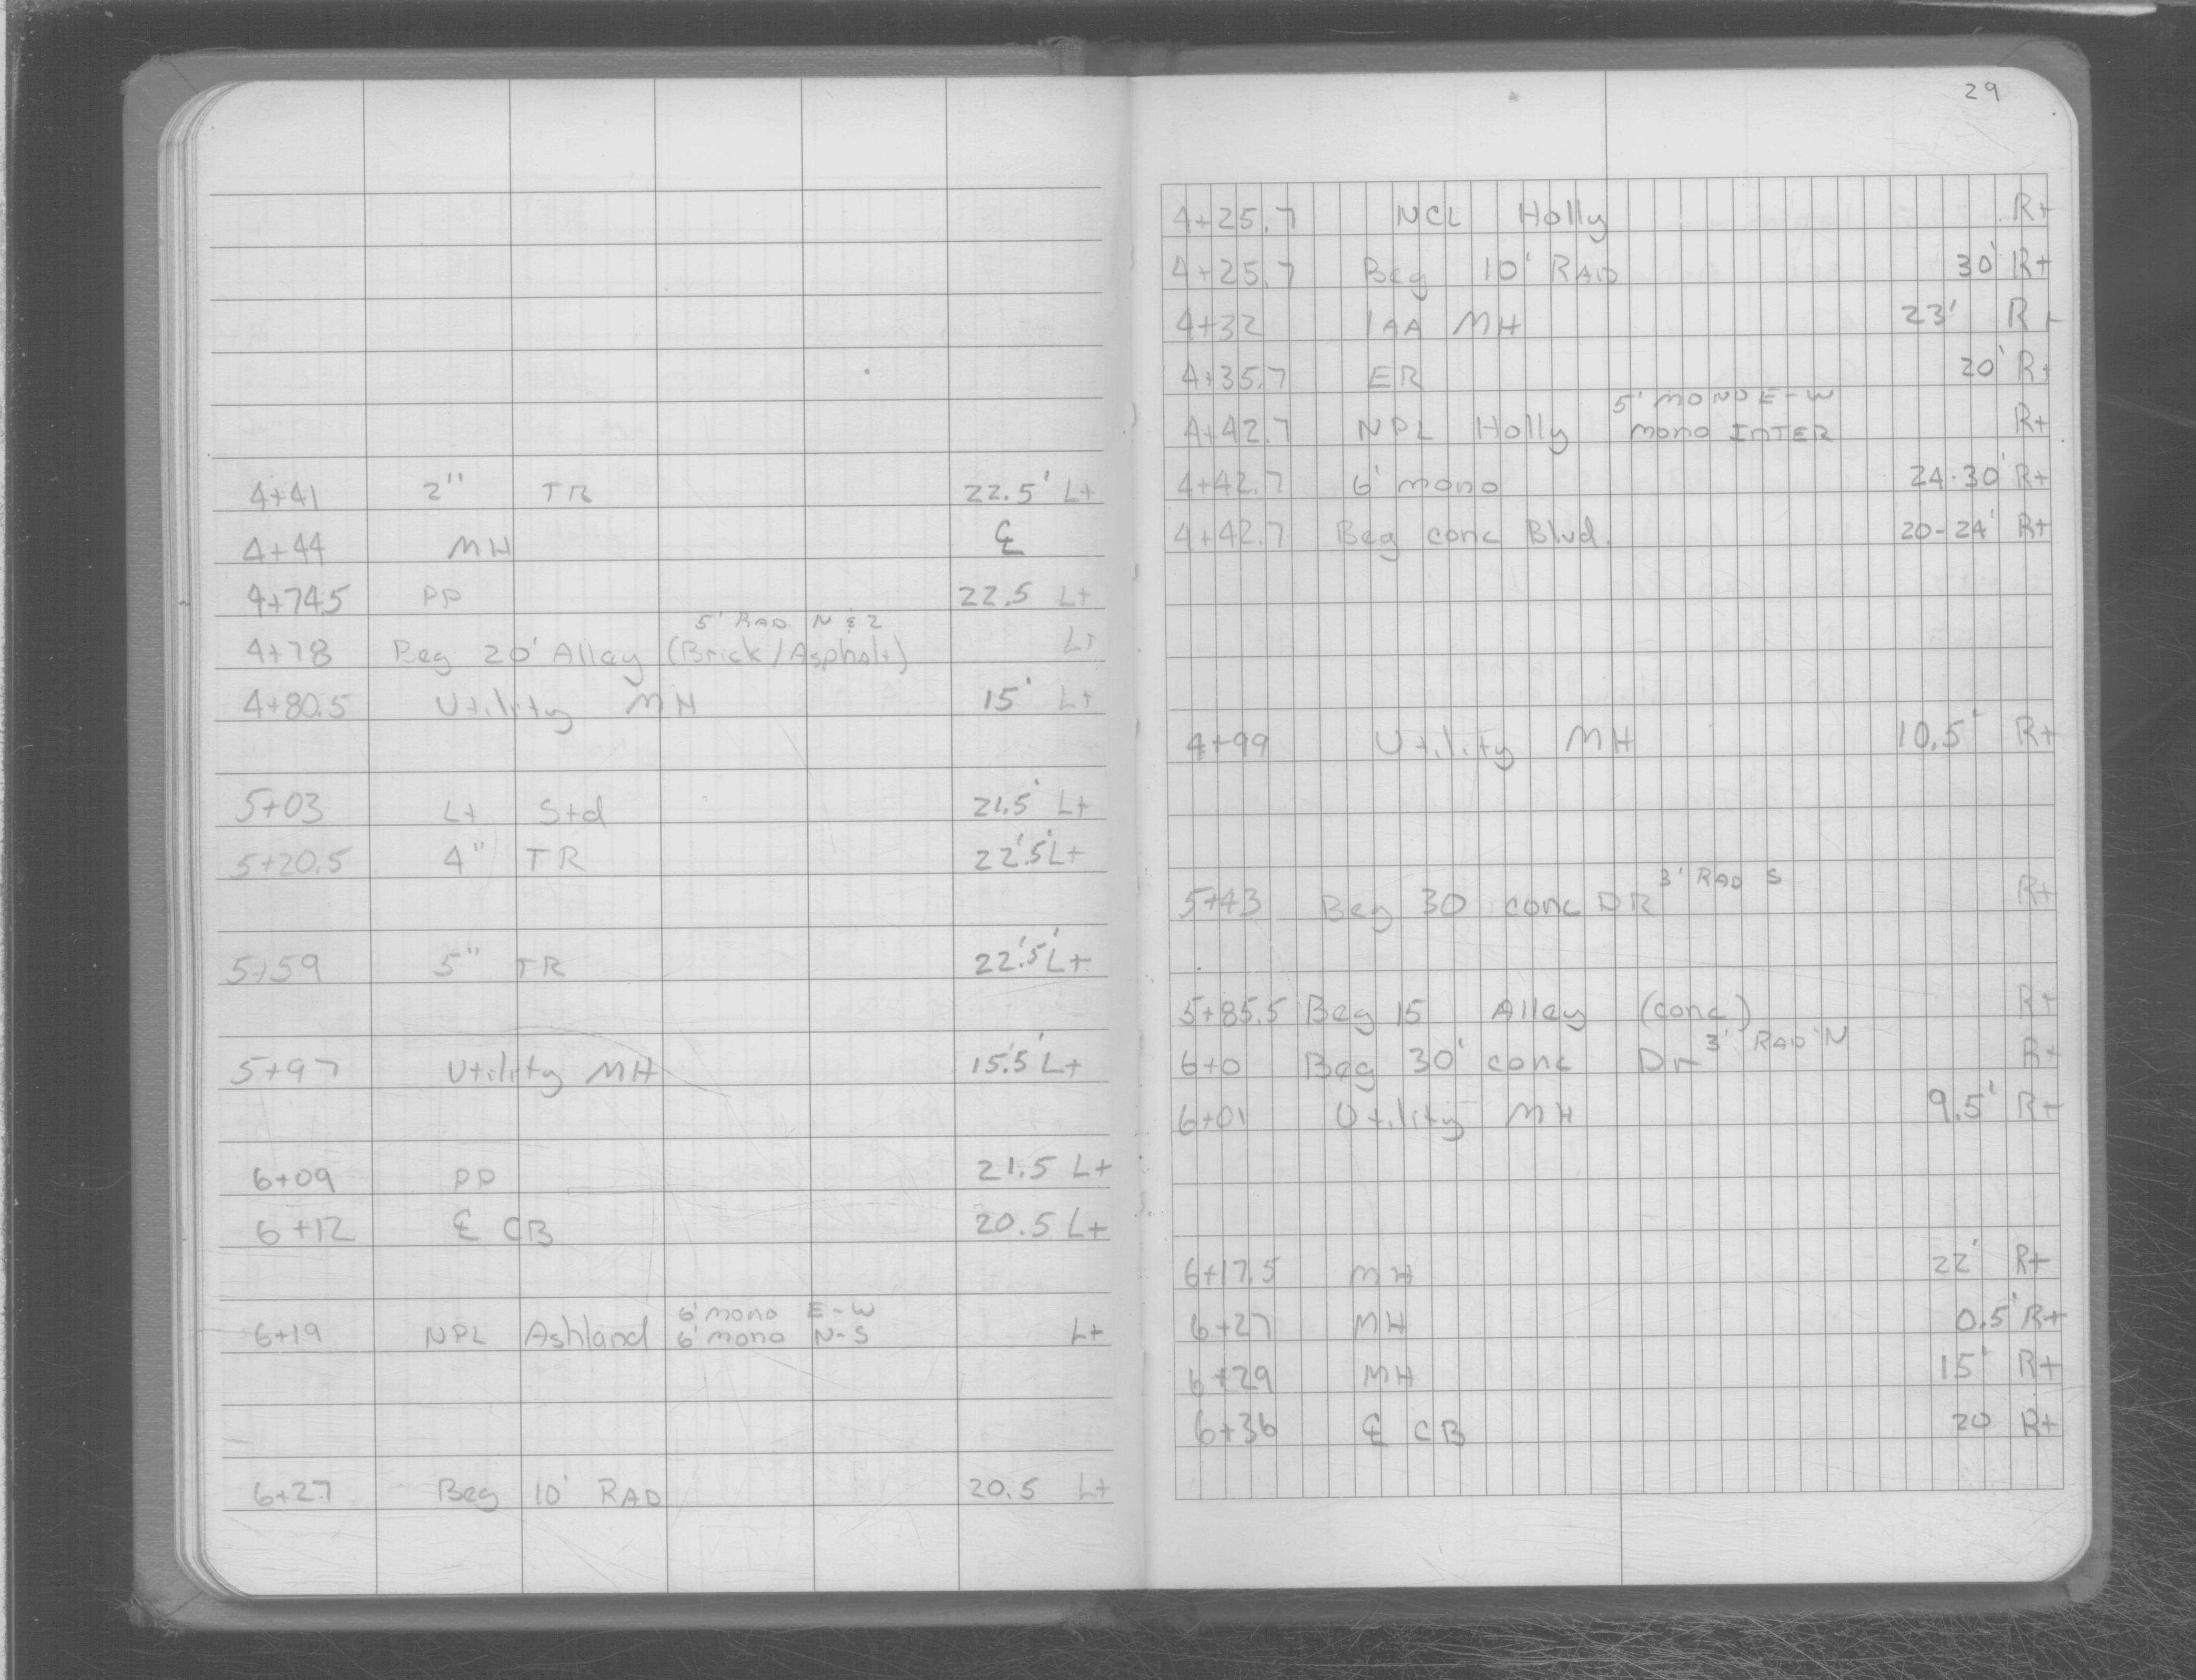 4+41 2" TR 22.5' Lt
4+44 MH ℄
4+74.5 PP 22.5 Lt
5' RAD N & S
4+78 Beg 20' Alley (Brick/Asphalt) Lt
4+80.5 Utility MH 15' Lt
5+03 Lt Std 21.5' Lt
5+20.5 4" TR 22.5' Lt
5+59 5" TR 22.5' Lt
5+97 Utility MH 15.5' Lt
6+09 PP 21.5 Lt
6+12 ℄ CB 20.5 Lt
6' mono E-W
6+19 NPL Ashland 6' mono N-S Lt
6+27 Beg 10' RAD 20.5 Lt
29
4+25.7 NCL Holly Rt
4+25.7 Beg 10' RAD 30' Rt
4+32 MH 23' Rt
4+35.7 ER 20' Rt
5' MONO E-W
4+42.7 NPL Holly mono INTER Rt
4+42.7 6' mono 24-30' Rt
4+42.7 Beg conc Blvd. 20-24' Rt
4+99 Utility MH 10.5' Rt
3' RAD S
5+43 Beg 30 conc DR Rt
5+85.5 Beg 15 Alley (conc) Rt
3' RAD N
6+0 Beg 30' conc Dr Rt
6+01 Utility MH 9.5' Rt
6+17.5 MH 22' Rt
6+27 MH 0.5' Rt
6+29 MH 15' Rt
6+36 ℄ CB 20 Rt